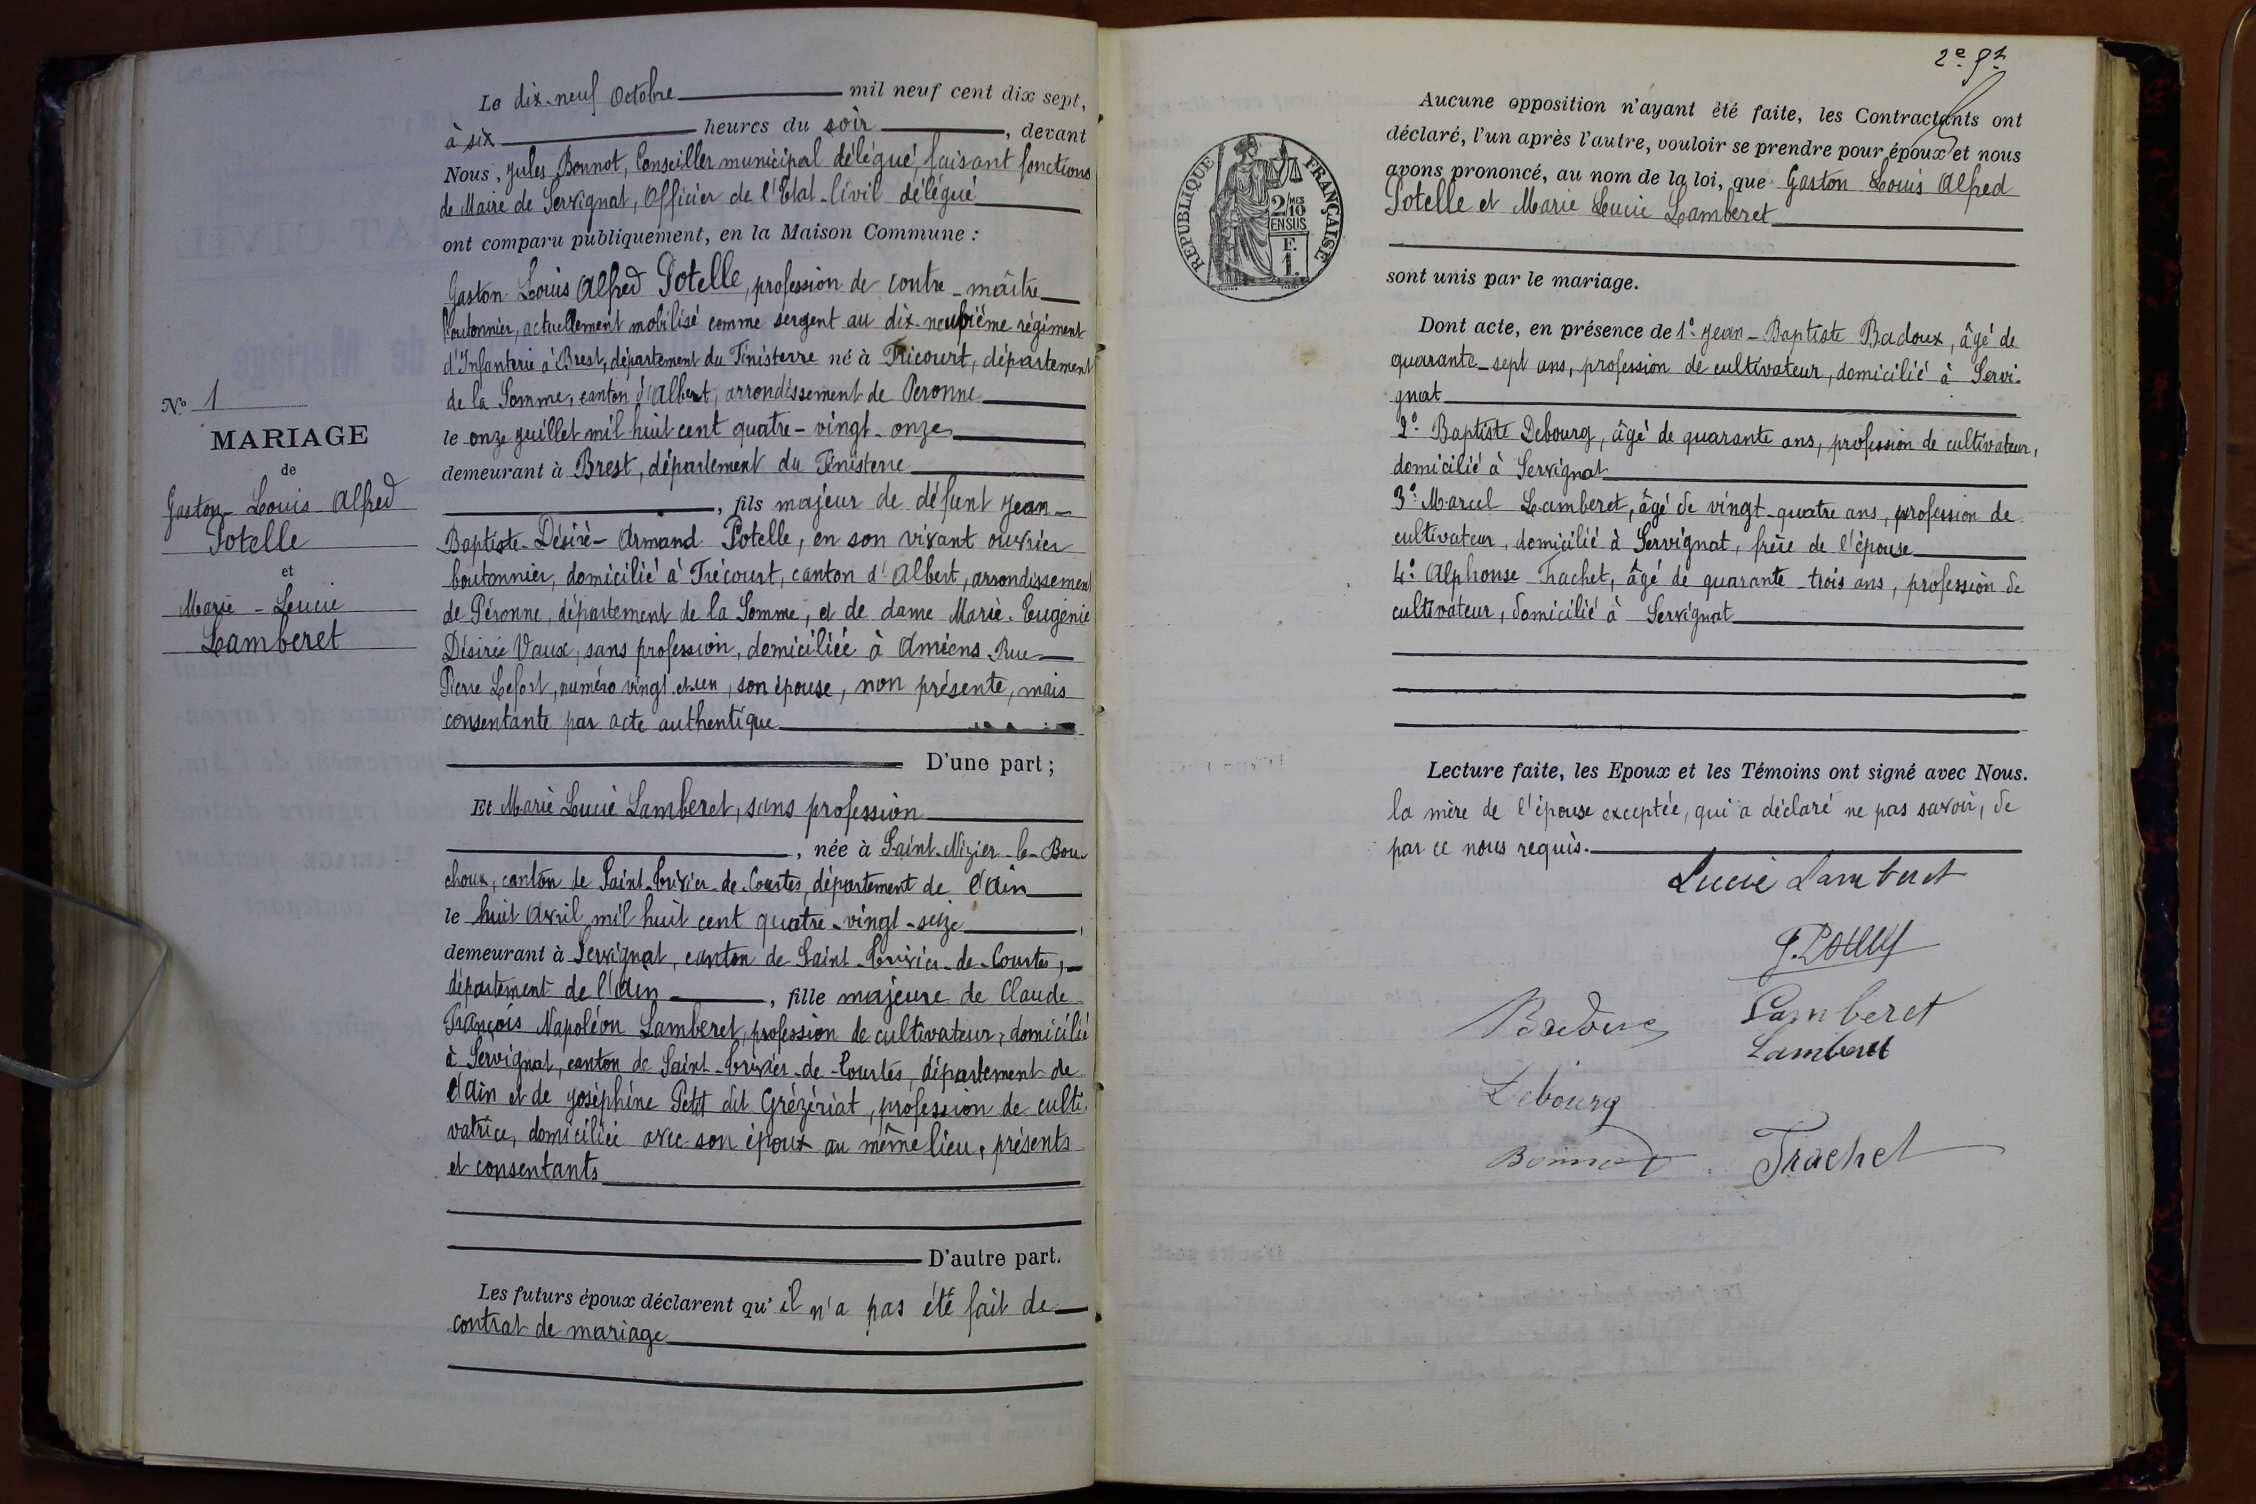 Le dix-neuf Octobre mil neuf cent dix sept,
à six heures du soir, devant
Nous, Jules Bonnot, Conseiller municipal délégué, faisant fonctions
de Maire de Servignat, Officier de l'Etat-Civil délégué
ont comparu publiquement, en la Maison Commune :
Gaston Louis Alfred Potelle, profession de contre-maître
boutonnier, actuellement mobilisé comme sergent au dix-neuvième régiment
d'Infanterie à Brest, département du Finisterre né à Fricourt, département
de la Somme, canton d'Albert, arrondissement de Peronne
le onze juillet mil huit cent quatre-vingt-onze,
demeurant à Brest, département du Finisterre
, fils majeur de défunt Jean-
Baptiste-Désiré-Armand Potelle, en son vivant ouvrier
boutonnier, domicilié à Frécourt, canton d'Albert, arrondissement
de Péronne, département de la Somme, et de dame Marie-Eugénie
Désirée Vaux, sans profession, domiciliée à Amiens Rue
Pierre Lefort, numéro vingt-et-un, son épouse, non présente, mais
consentante par acte authentique
D'une part ;
Et Marie Lucie Lamberet, sans profession
, née à Saint-Nizier-le-Bou-
choux, canton de Saint-Trivier-de-Courtes, département de l'Ain
le huit Avril mil huit cent quatre-vingt-seize,
demeurant à Servignat, canton de Saint-Trivier-de-Courtes,
département de l'Ain, fille majeure de Claude
François Napoléon Lamberet, profession de cultivateur, domicilié
à Servignat, canton de Saint-Trivier-de-Courtes, département de
l'Ain et de Joséphine Petit dit Grézériat, profession de culti-
vatrice, domiciliée avec son époux au même lieu, présents
et consentants
D'autre part.
Les futurs époux déclarent qu'il n'a pas été fait de
contrat de mariage
No 1
MARIAGE
de
Gaston Louis Alfred
Potelle
et
Marie-Lucie
Lamberet
2e
REPUBLIQUE FRANÇAISE
2/10 MES
EN SUS
F.
1.
Aucune opposition n'ayant été faite, les Contractants ont
déclaré, l'un après l'autre, vouloir se prendre pour époux et nous
avons prononcé, au nom de la loi, que Gaston Louis Alfred
Potelle et Marie Lucie Lamberet
sont unis par le mariage.
Dont acte, en présence de 1° Jean-Baptiste Badoux, âgé de
quarante-sept ans, profession de cultivateur, domicilié à Servi-
gnat
2° Baptiste Debourg, âgé de quarante ans, profession de cultivateur,
domicilié à Servignat
3° Marcel Lamberet, âgé de vingt-quatre ans, profession de
cultivateur, domicilié à Servignat, frère de l'épouse
4° Alphonse Trachet, âgé de quarante-trois ans, profession de
cultivateur, domicilié à Servignat
Lecture faite, les Epoux et les Témoins ont signé avec Nous.
la mère de l'épouse exceptée, qui a déclaré ne pas savoir, de
par ce nous requis.
Lucie Lamberet
G. Potelle
Badoux
Lamberet
Lamberet
Debourg
Bonnot
Trachet